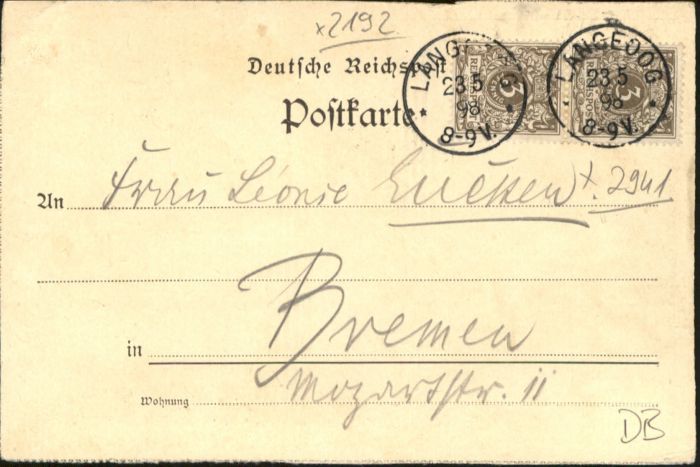 x2192
Deutsche Reichspost
Postkarte
LANGEOOG
23 5
98
8-9V.
LANGEOOG
23 5
98
8-9V.
3
3
An Frau Léonie x. 2941
in Bremen
Wohnung Mozartstr. 11
DB